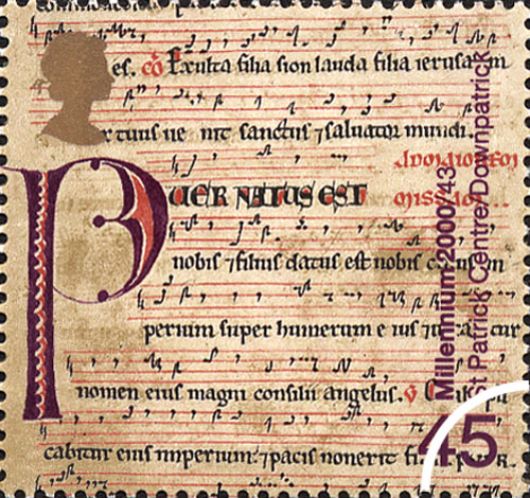 es. Exulta filia sion lauda filia ierusalem
tuus ue nit sanctus ⁊ saluator mundi.
PUER NATUS EST
nobis ⁊ filius datus est nobis
perium super humerum e ius ⁊
nomen eius magni consilii angelus.
cabitur eius imperium. ⁊ pacis non erit
Millennium 2000/43
St Patrick Centre/Downpatrick
45